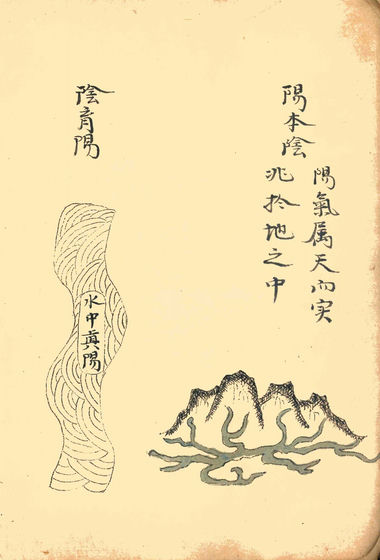 陽本陰
陽氣属天而实
兆扵地之中
陰育陽
水中真陽